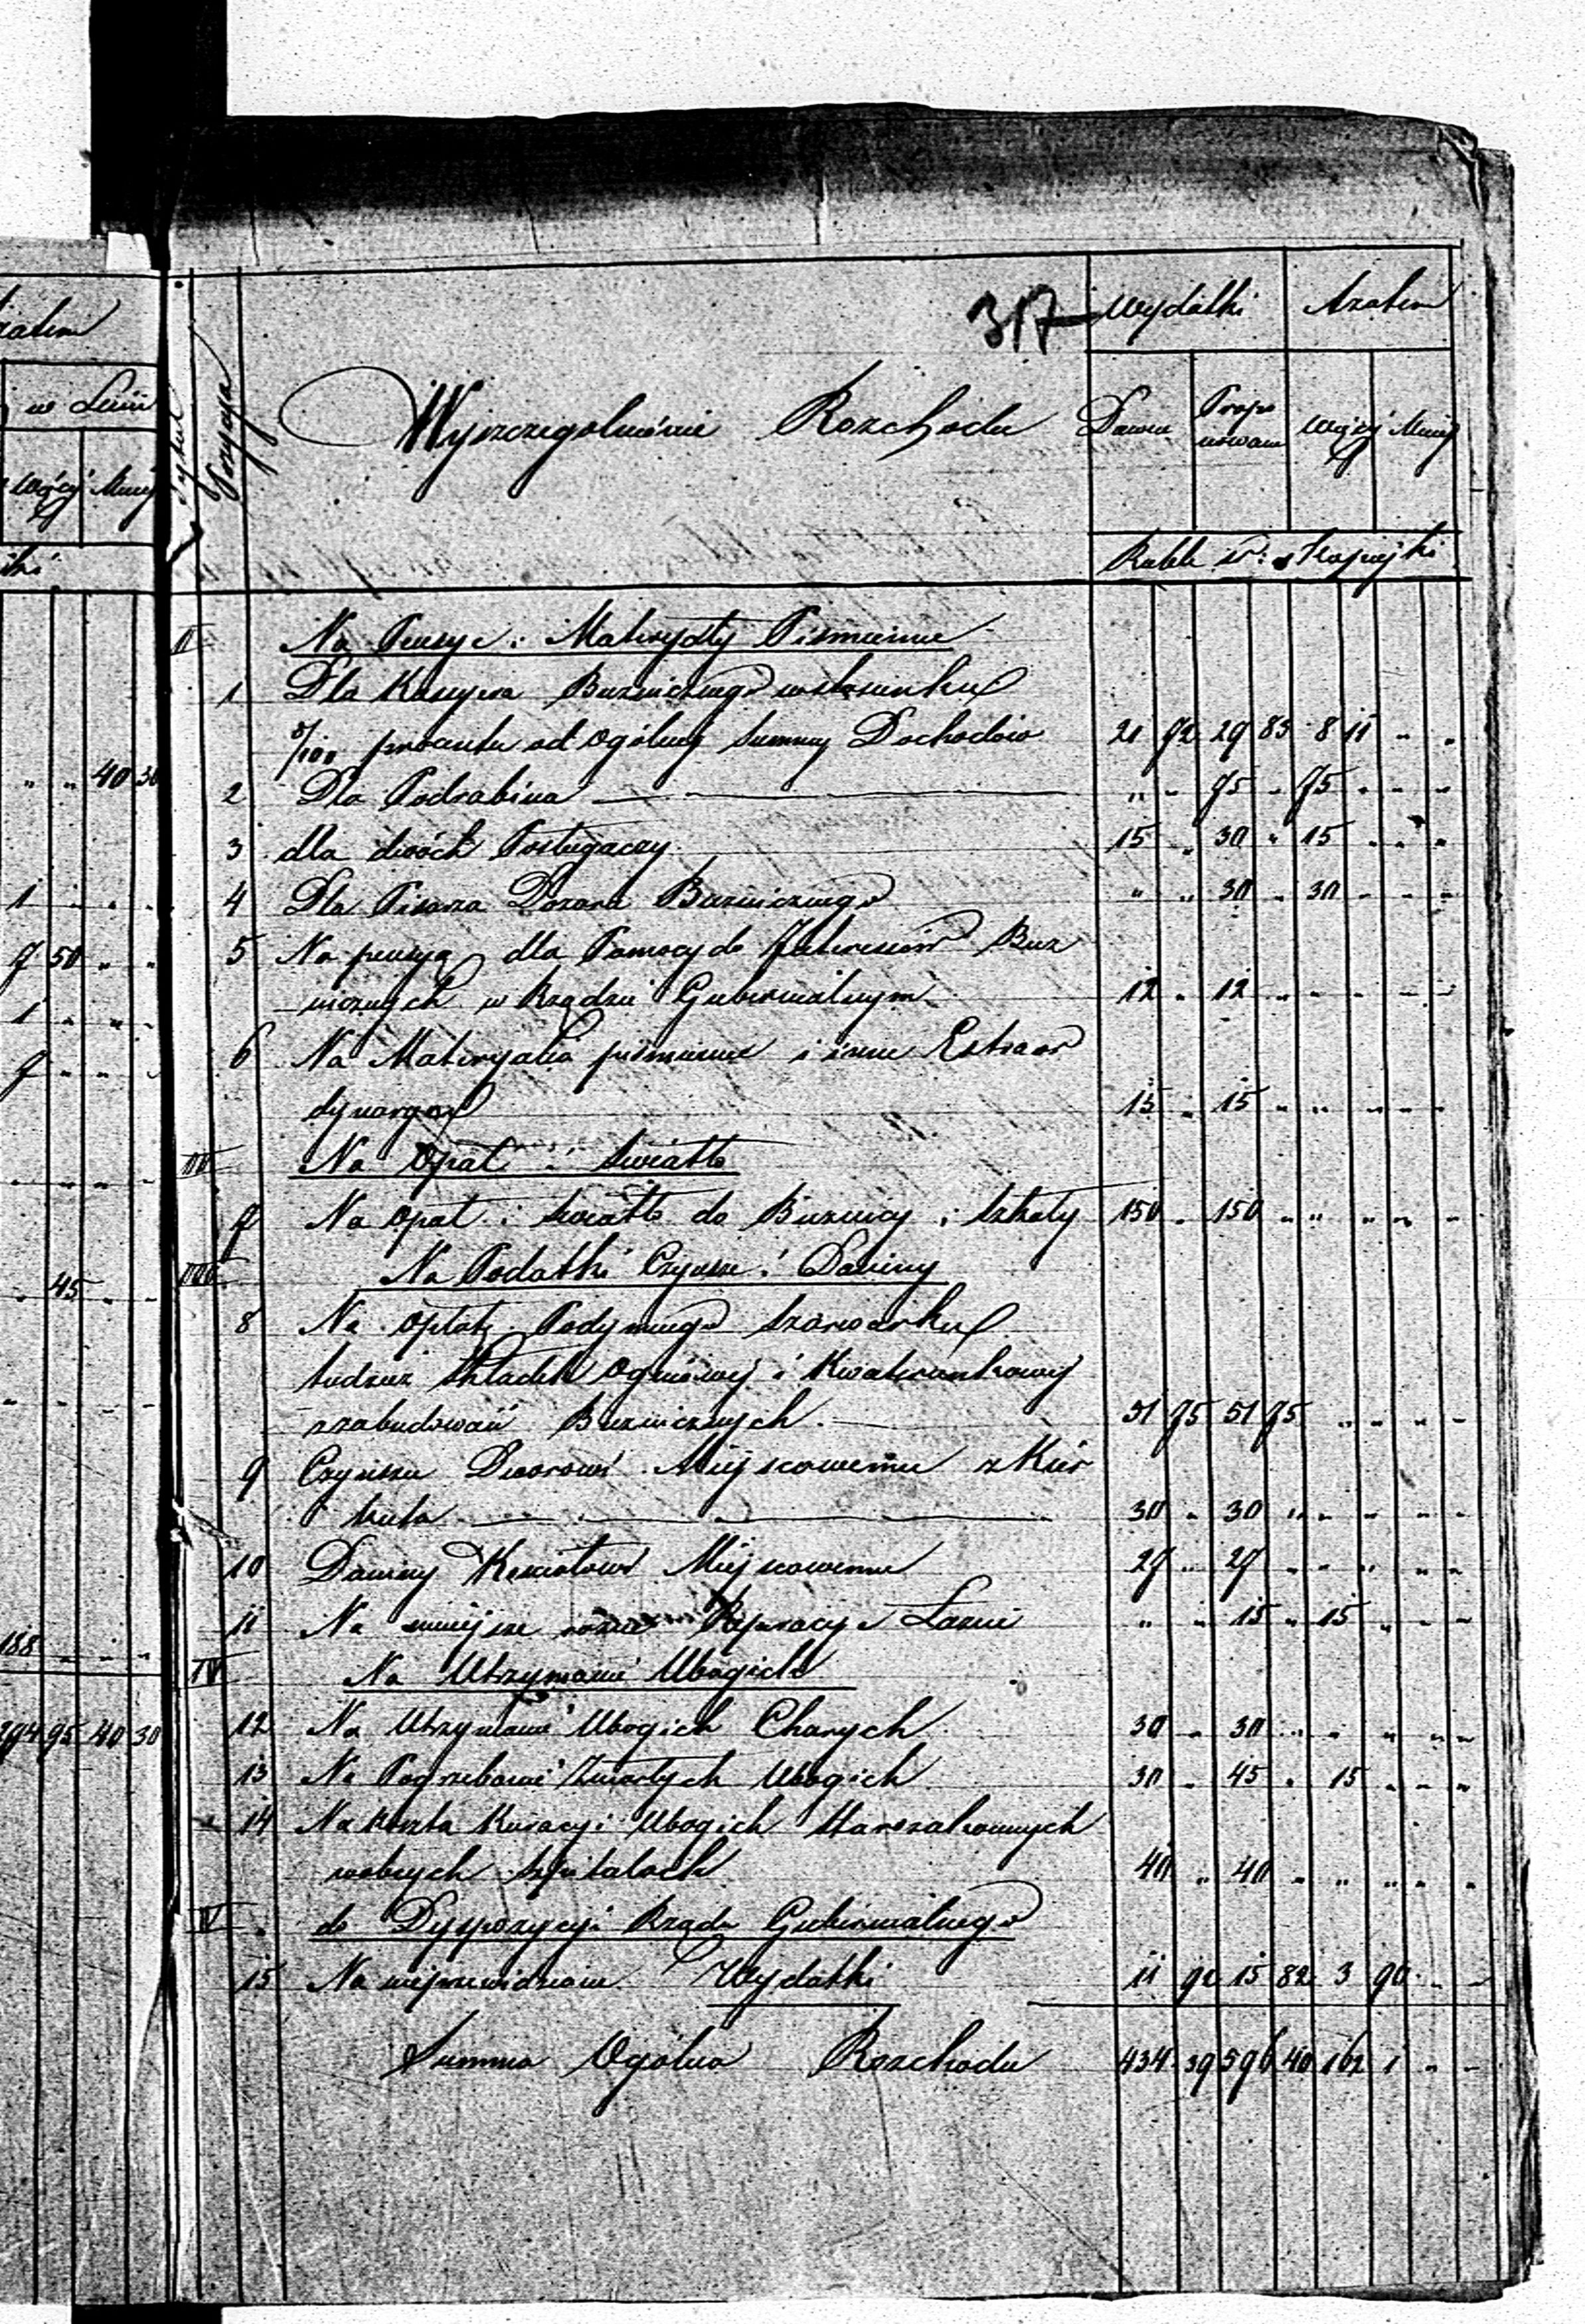 317
Wydatki Azatem
Tytuł Pozycja Wyszczególnienie Rozchodu Dawne Propo Więcej Mniej
nowane
Rubli sr: Kopiejki
II Na Pensye i Materyały Piśmienne
1 Dla Kassyera Bużniczego w stosunku
5/100 procentu od Ogólnej Summy Dochodów 21 72 29 83 8 11 " "
2 Dla Podrabina " " 75 " 75 " " "
3 dla dwóch Posługaczy 15 " 30 " 15 " " "
4 Dla Pisarza Dozoru Bużniczego " " 30 " 30 " " "
5 Na pensyą dla Pomocy do Interesów Buż
niczych w Rządzie Gubernialnym 12 " 12 " " " " "
6 Na Materyalia piśmienne i inne Extraor
dynarya 15 " 15 " " " " "
III Na Opał i Światło
7 Na Opał i Światło do Bużnicy i Szkoły 150 " 150 " " " " "
Na Podatki Czynsze i Daniny
8 Na Opłatę Podymnego Szarwarku
tudzież Składek Ogniowej i Kwaterunkowej
z zabudowań Bużniczych 51 75 51 75 " " " "
9 Czynszu Dworowi Miejscowemu z Kir
kuta 30 " 30 " " " " "
10 Daniny Kościołowi Miejscowemu 27 " 27 " " " " "
11 Na mniejsze różne Reparacye Łaźni " " 15 " 15 " " "
IV Na Utrzymanie Ubogich
12 Na Utrzymanie Ubogich Chorych 30 " 30 " " " " "
13 Na Pogrzebanie Zmarłych Ubogich 30 " 45 " 15 " " "
14 Na Koszta Kuracyi Ubogich Starozakonnych
w obcych Szpitalach 40 " 40 " " " " "
IV do Dyspozycyi Rządu Gubernialnego
15 Na nieprzewidziane Wydatki 11 92 15 82 3 90 " "
Summa Ogólna Rozchodu 434 39 596 40 162 1 " "
zatem
w Summie
Więcej Mniej
" " 40 30
1 " " "
7 50 " "
1 " " "
7 " " "
" 45 " "
188 " " "
294 95 40 30